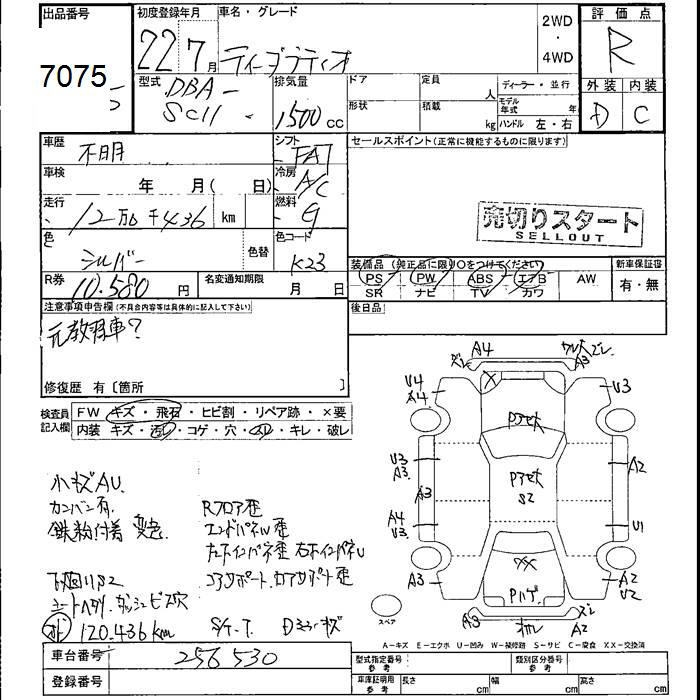 出品番号 初度登録年月 車名・グレード 2WD・4WD 評価点
7075 22年7月 ティーダラティオ R
型式 DBA-SC11 排気量 1500cc ドア 定員 人 ディーラー・並行 外装 内装
形状 積載 kg モデル年式 年 ハンドル 左・右 D C
車歴 不明 シフト FAT セールスポイント(正常に機能するものに限ります)
車検 年 月(日) 冷房 A/C
走行 12万0千436 km 燃料 G
売切りスタート
SELLOUT
色 シルバー 色替 色コード K23
装備品(純正品に限り○をつけてください) 新車保証書
PS PW ABS エアB AW 有・無
SR ナビ TV カワ
R券 10.580円 名変通知期限 月 日
後日品
注意事項申告欄(不具合内容等は具体的に記入して下さい)
元教習車?
修復歴 有〔箇所 〕
検査員記入欄 FW キズ・飛石・ヒビ割・リペア跡・×要
内装 キズ・汚レ・コゲ・穴・ ・キレ・破レ
A4 A3
U4 A4 U3
Pアセ
U3 A3 A3 A2
Pアセ S2
A4 U3 U1
A3 XX A2 U2
Pハゲ
A3 A2
スペア
小キズAU.
カンバン有.
鉄粉付着 変色.
Rフロア歪
エンドパネル歪
下廻りS2
シートヘタリ. ダッシュビス穴
120.436km S/T-T. Dミラーキズ
A-キズ E-エクボ U-凹み W-補修跡 S-サビ C-腐食 XX-交換済
車台番号 256530
登録番号
型式指定番号 参考 類別区分番号 参考
車庫証明用 参考 長さ cm 幅 cm 高さ cm